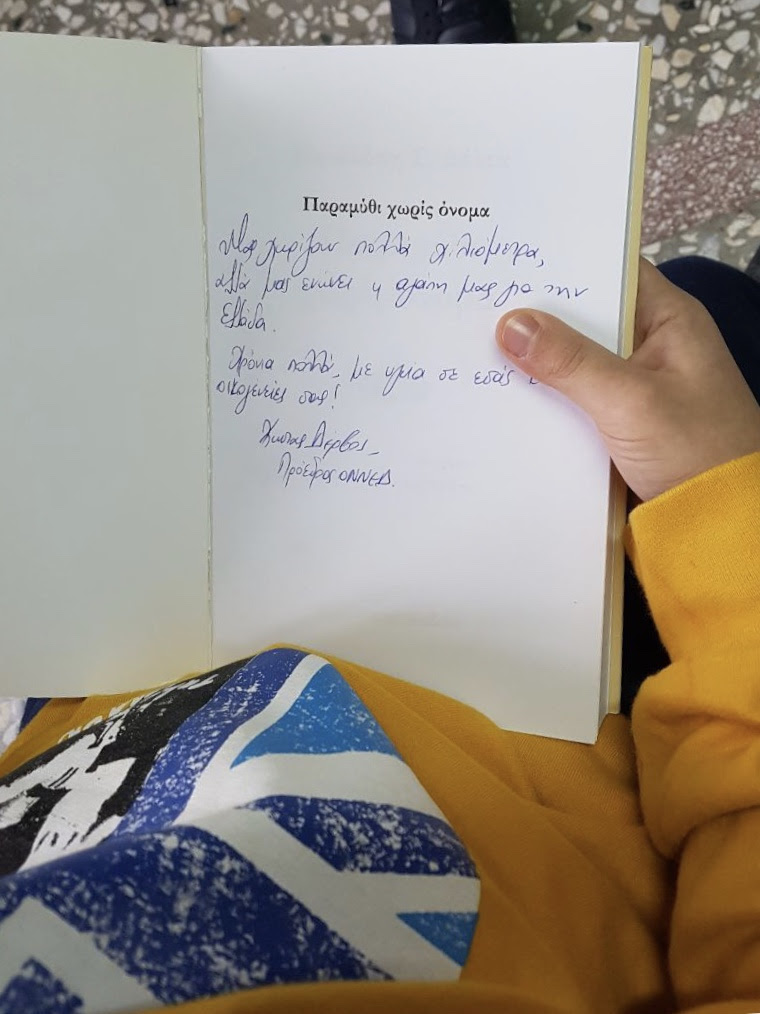 Παραμύθι χωρίς όνομα
Μας χωρίζουν πολλά χιλιόμετρα,
αλλά μας ενώνει η αγάπη μας για την
Ελλάδα.
Χρόνια πολλά, με υγεία σε εσάς
οικογένειές σας!
Κώστας Δέρβος,
Πρόεδρος ΟΝΝΕΔ.